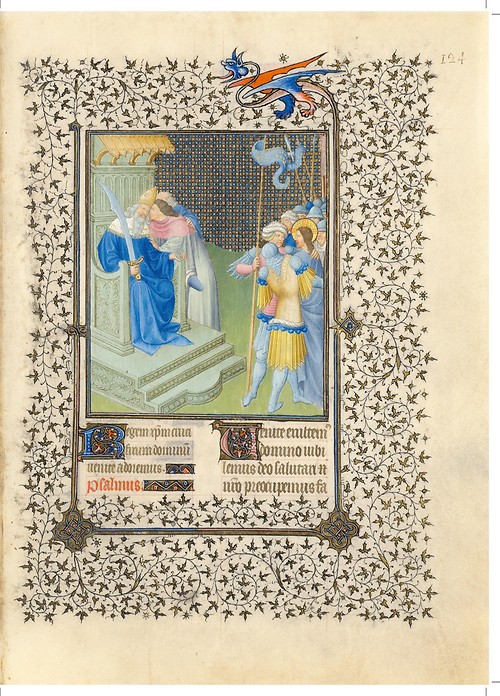 124
Regem xpm
dominū
uenite adoremus
psalmus
Uenite exultem
domino iubi
lemus deo salutari n
preocupemus fa